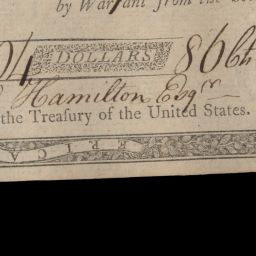 by Warrant from the
04 DOLLARS 86
Hamilton Esqr
the Treasury of the United States.
ERICA